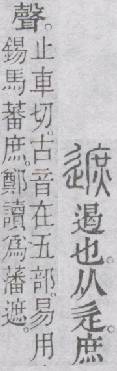 遮遏也。从辵。庶
聲。
止車切。古音在五部。易用
錫馬蕃庶。鄭讀爲藩遮。